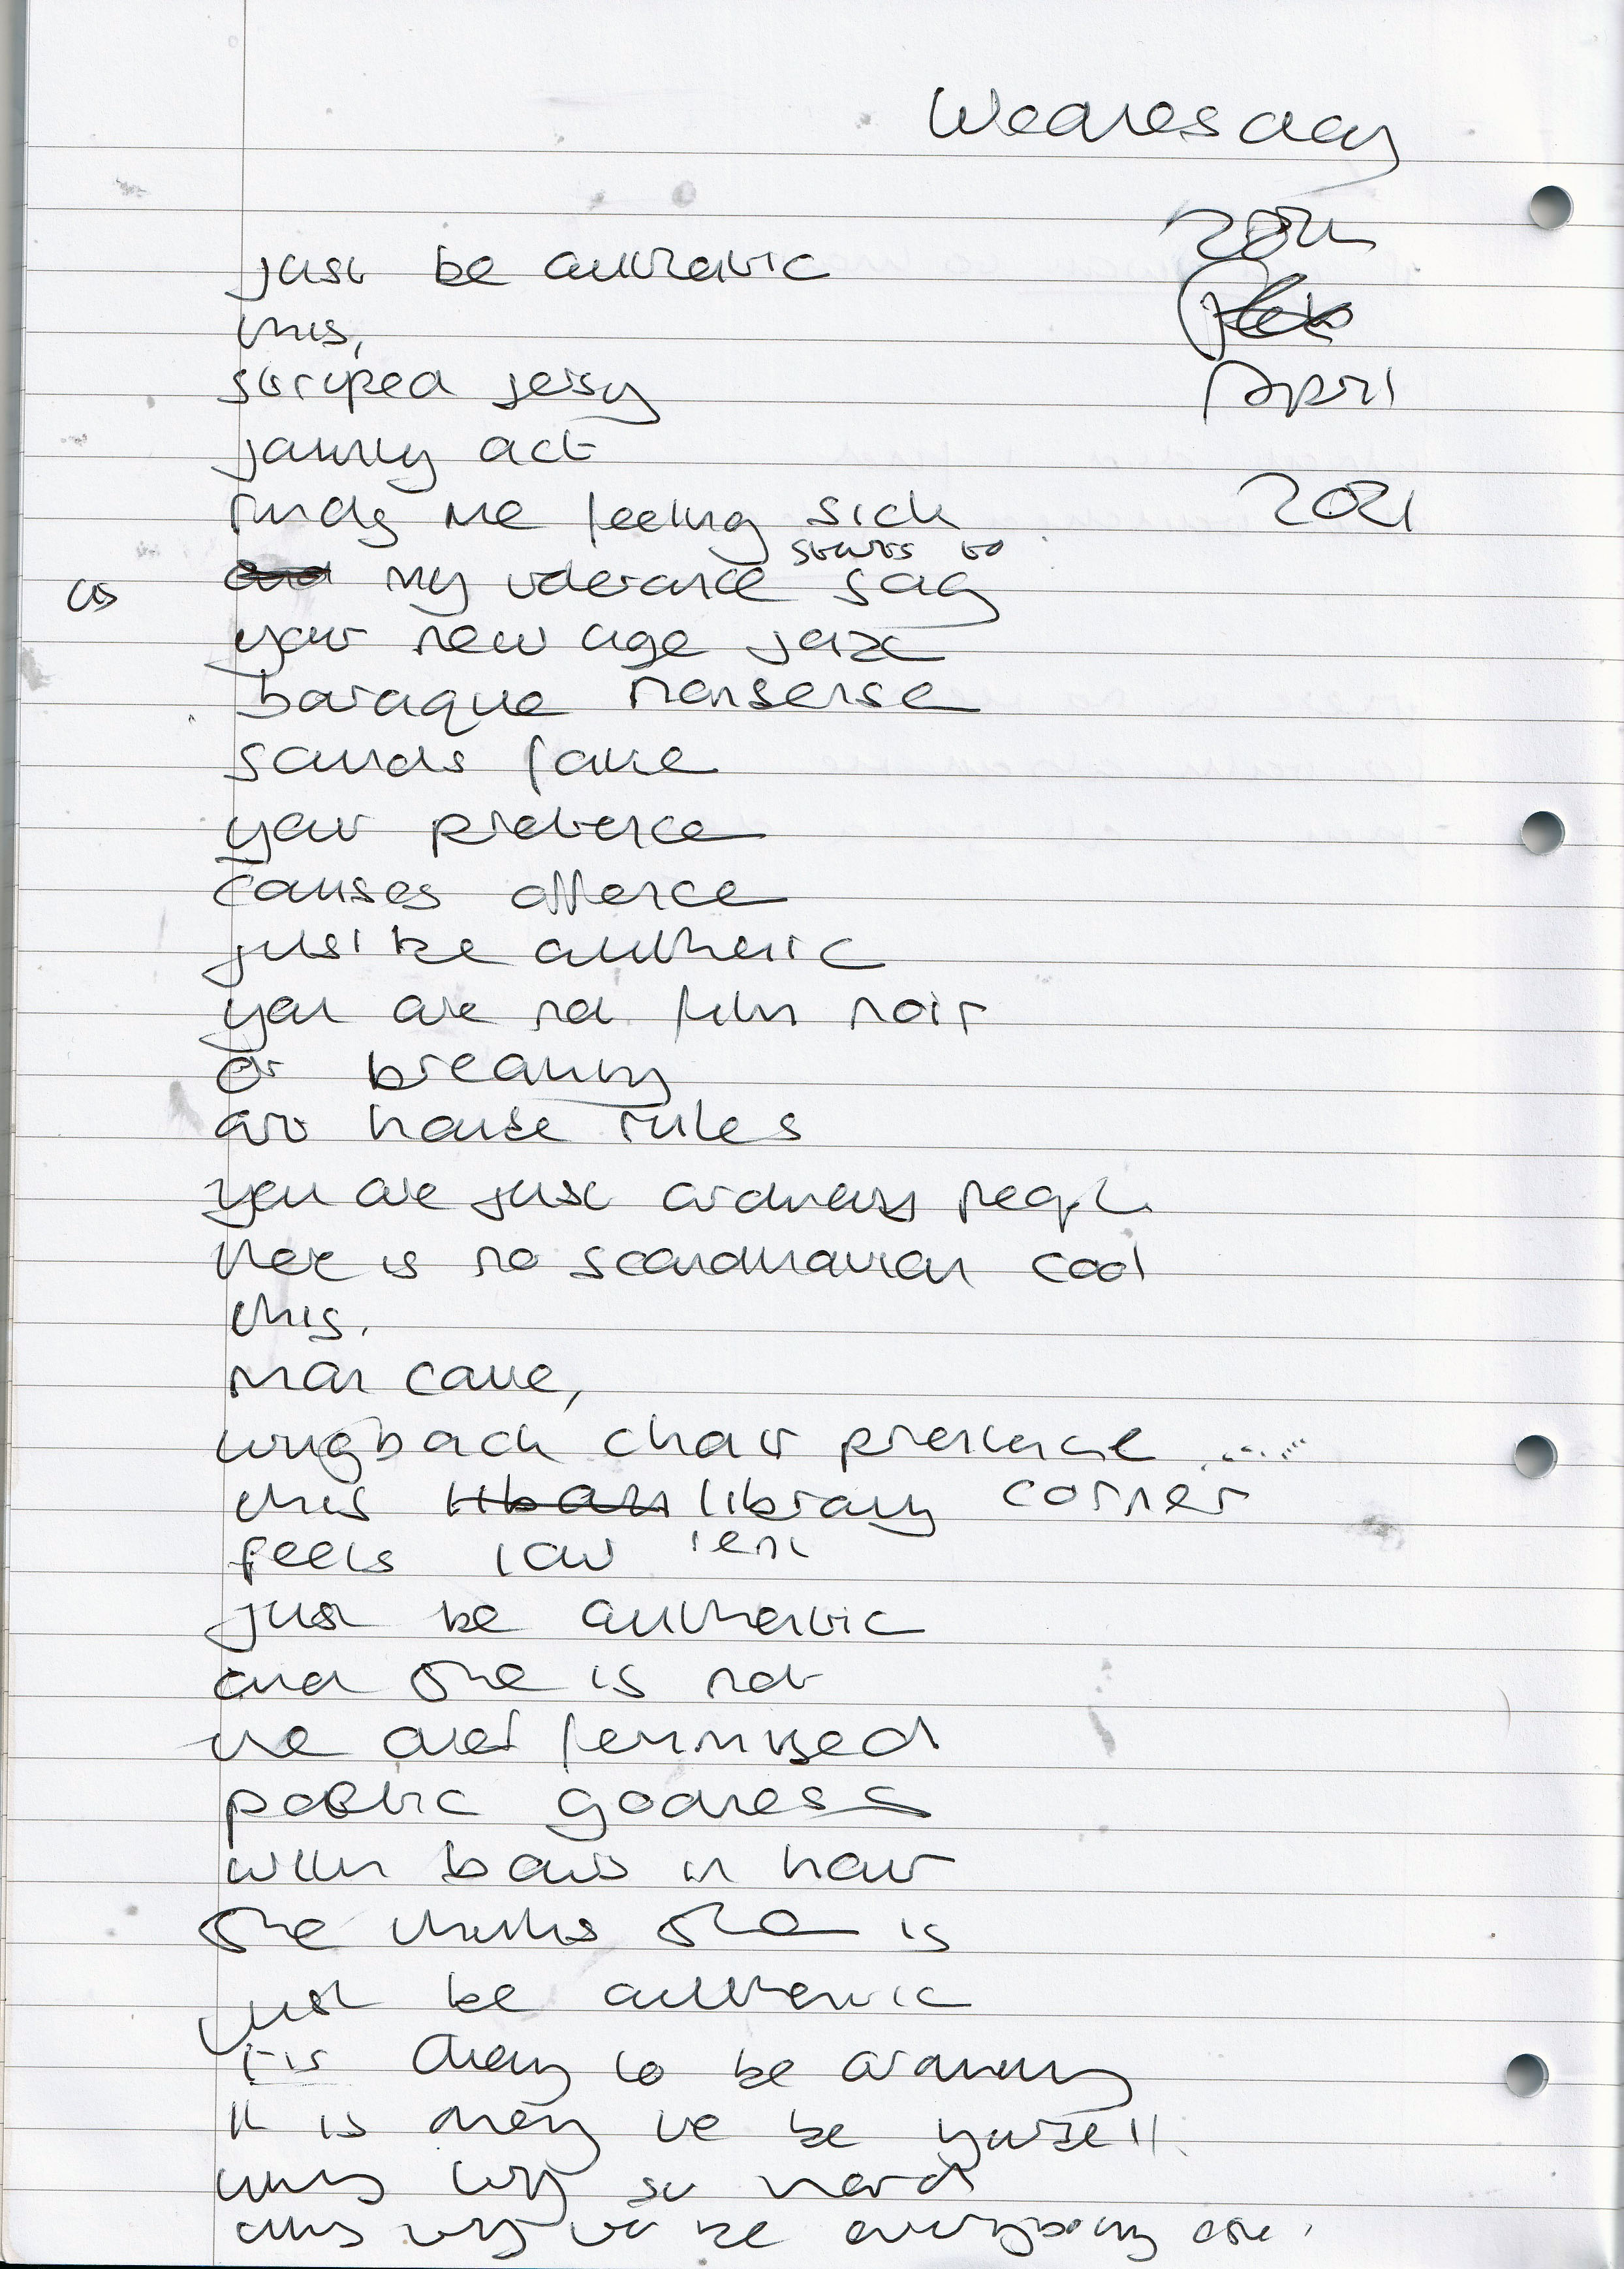 Wednesday
20th
April
2021
just be authentic
this,
striped jersy
jaunty act
finds me feeling sick
starts to
as my tolerance sag
your new age jazz
baroque nonsense
sounds fake
your pretence
causes offence
just be authentic
you are not film noir
or breathy
art house rules
you are just ordinary people
there is no scandinavian cool
this.
man cave,
wingback chair pretence .....
this library corner
feels low rent
just be authentic
and she is not
the over feminised
public godness
with bows in hair
she thinks she is
just be authentic
it is okay to be ordinary
it is okay to be yourself
why try so hard
why try to be everybody else.